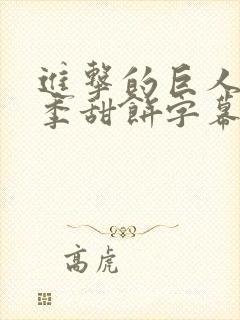 進擊的巨人
季甜餅字幕
高虎